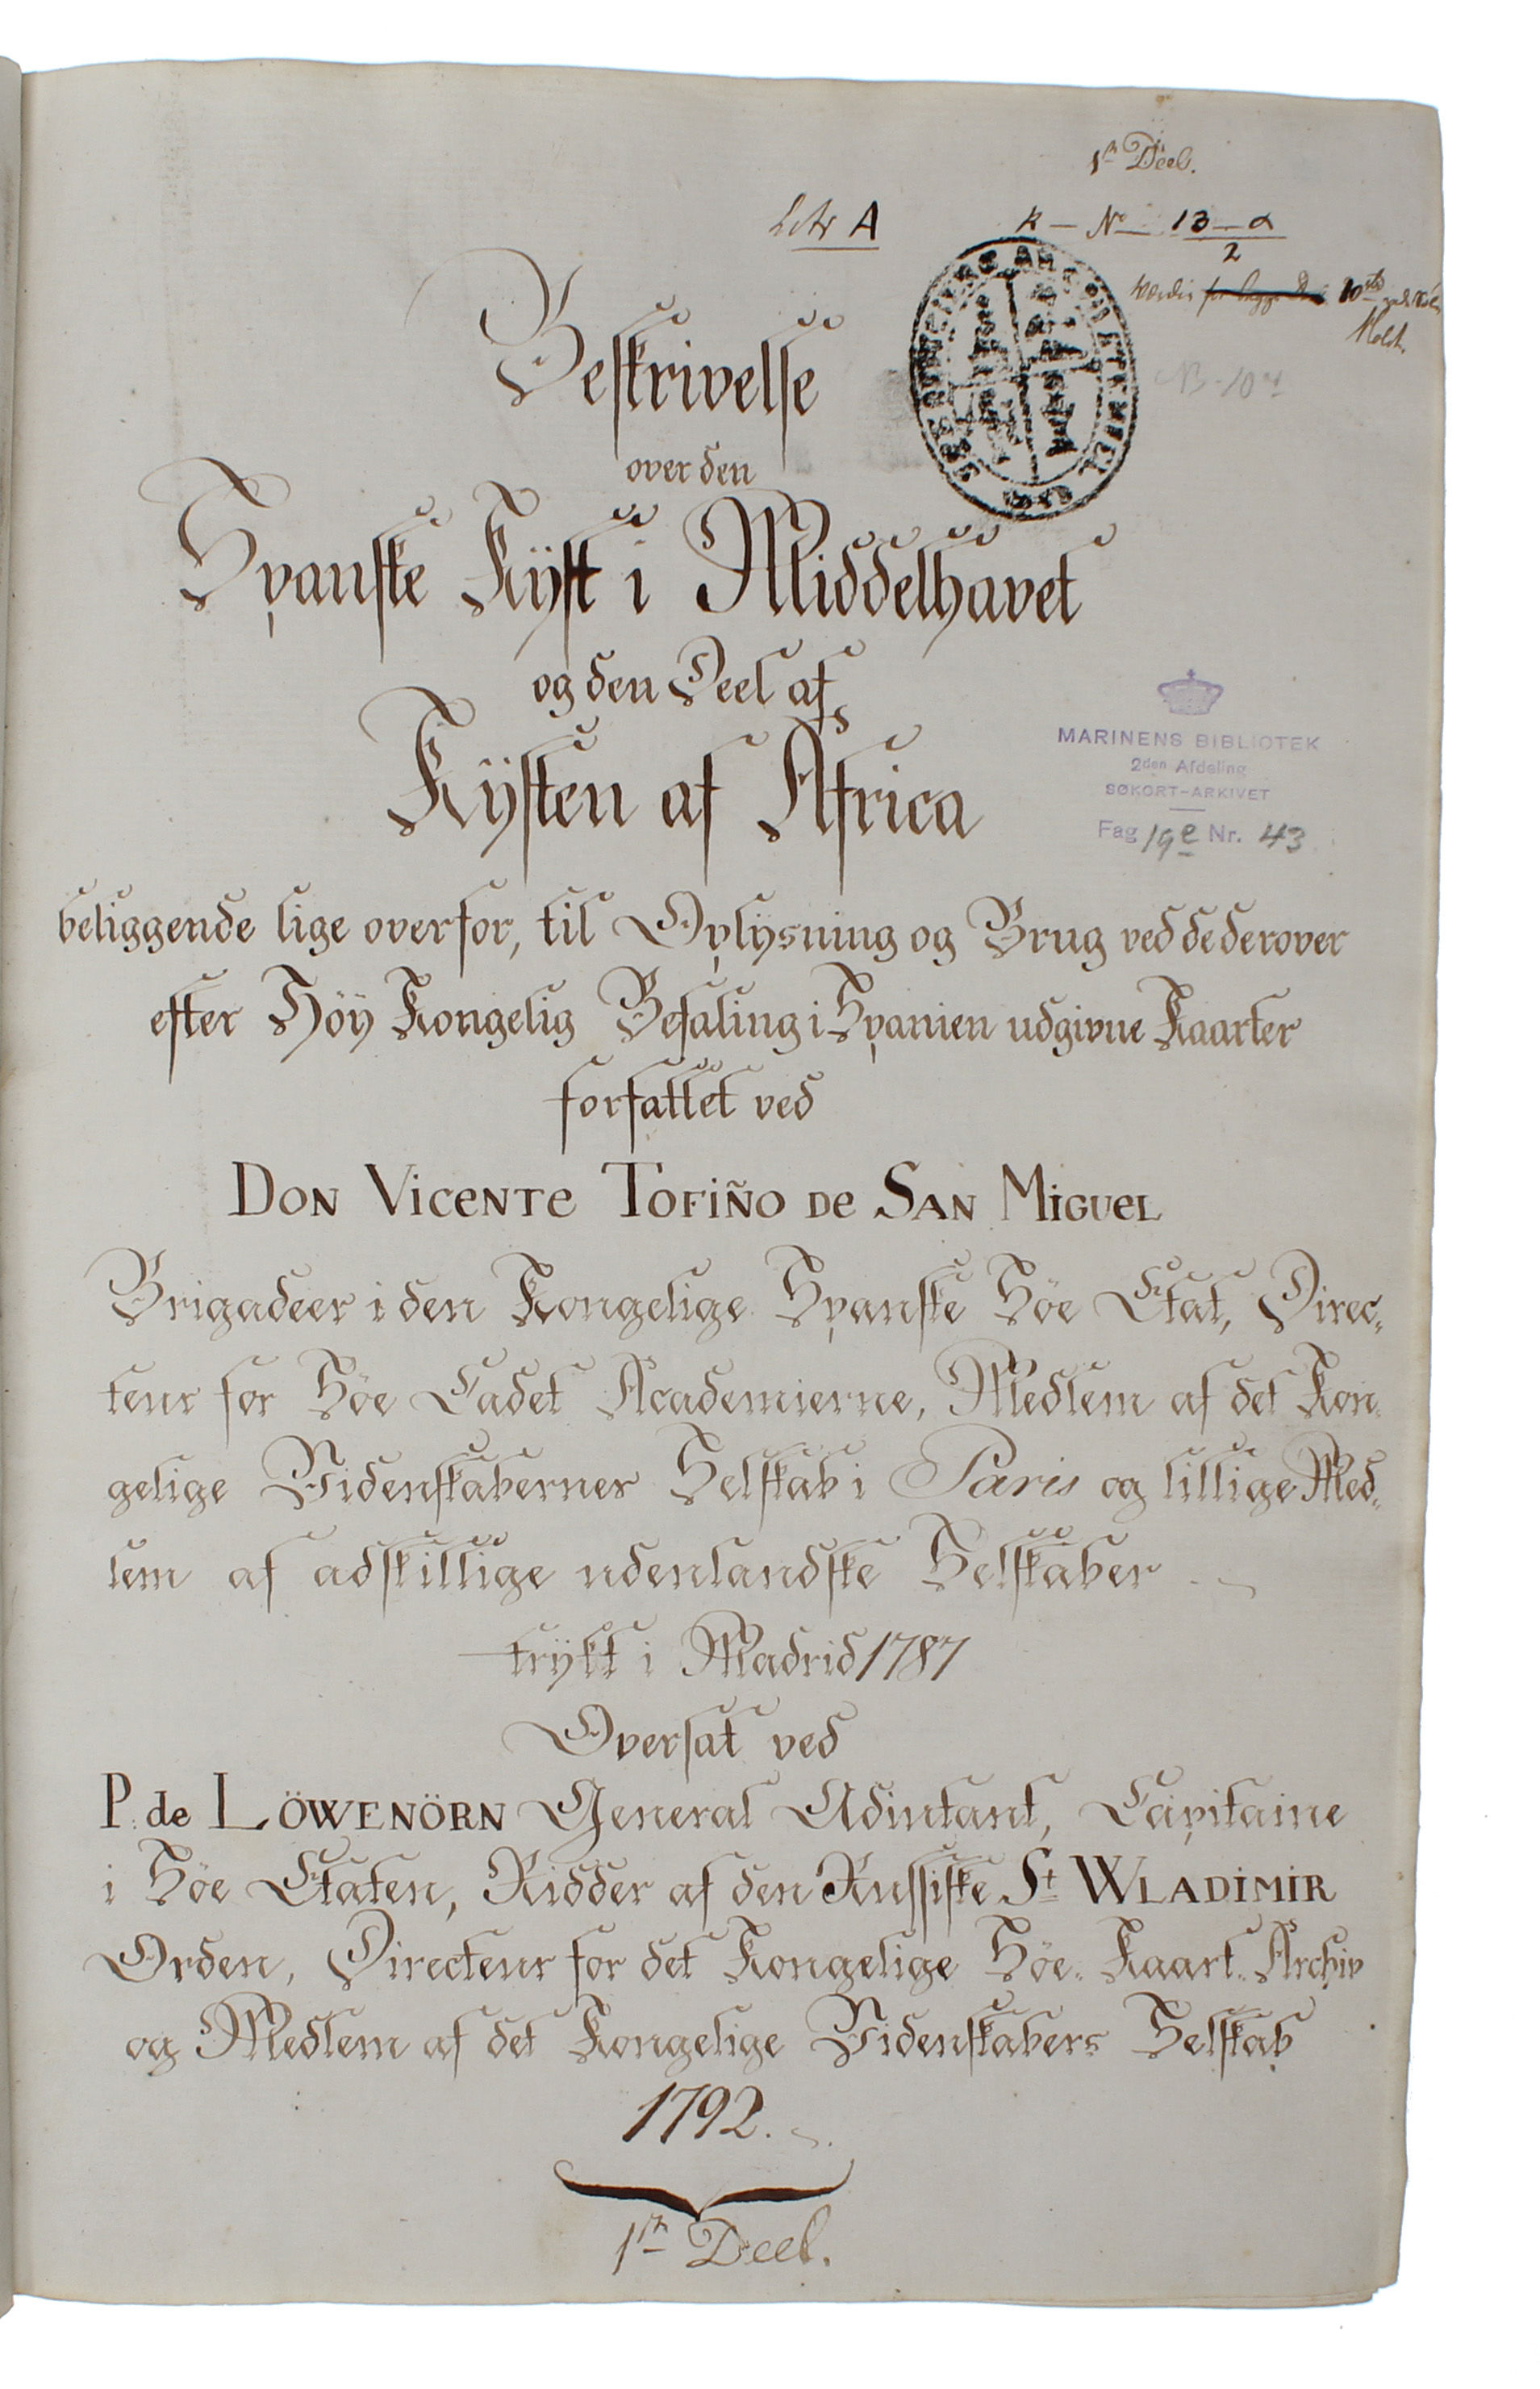 1ste Deel.
Litr A
K — No 13 — a
2
Værdie 10
Beskrivelse
over den
Spanske Kÿst i Middelhavet
og den Deel af
Kÿsten af Africa
MARINENS BIBLIOTEK
2den Afdeling
SØKORT-ARKIVET
Fag 19e Nr. 43
beliggende lige overfor, til Oplÿsning og Brug ved de derover
efter Höÿ Kongelig Befaling i Spanien udgivne Kaarter
forfattet ved
DON VICENTE TOFIÑO DE SAN MIGUEL
Brigadeer i den Kongelige Spanske Söe Etat, Direc„
teur for Söe Cadet Academierne, Medlem af det Kon„
gelige Videnskaberner Selskab i Paris og tillige Med„
lem af adskillige udenlandske Selskaber
trÿkt i Madrid 1787
Oversat ved
P. de LÖWENÖRN General Adiutant, Capitaine
i Söe Etaten, Ridder af den Russiske St WLADIMIR
Orden, Directeur for det Kongelige Söe„ Kaart„ Archiv
og Medlem af det Kongelige Videnskabers Selskab
1792.
1ste Deel.